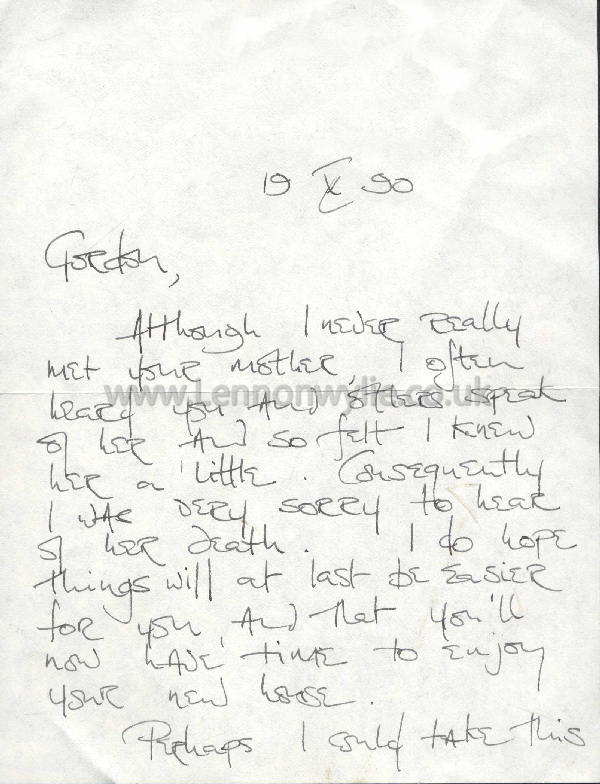 19 X 90
Gordon,
Although I never really
met your mother, I often
heard you and others speak
of her and so felt I knew
her a little. Consequently
I was very sorry to hear
of her death. I do hope
things will at last be easier
for you, and that you'll
now have time to enjoy
your new house.
Perhaps I could take this
www.Lennonwylie.co.uk